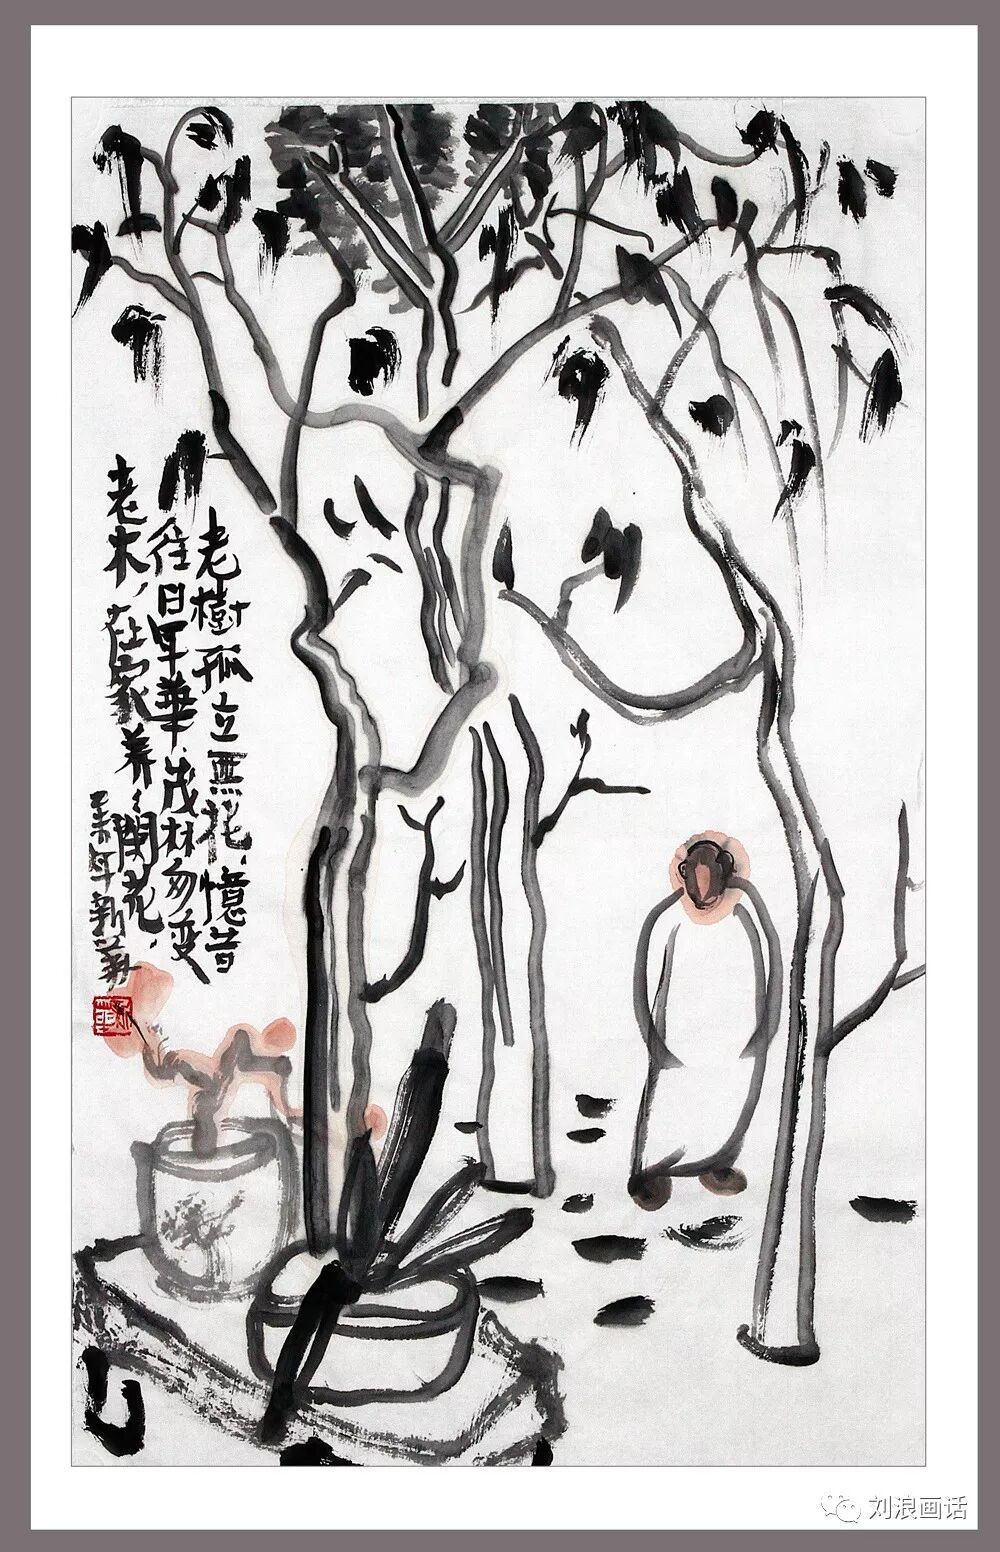 老樹孤立無花，憶昔
往日年華，茂林勿变
老木，在家养养閑花，
年新華
刘浪画话